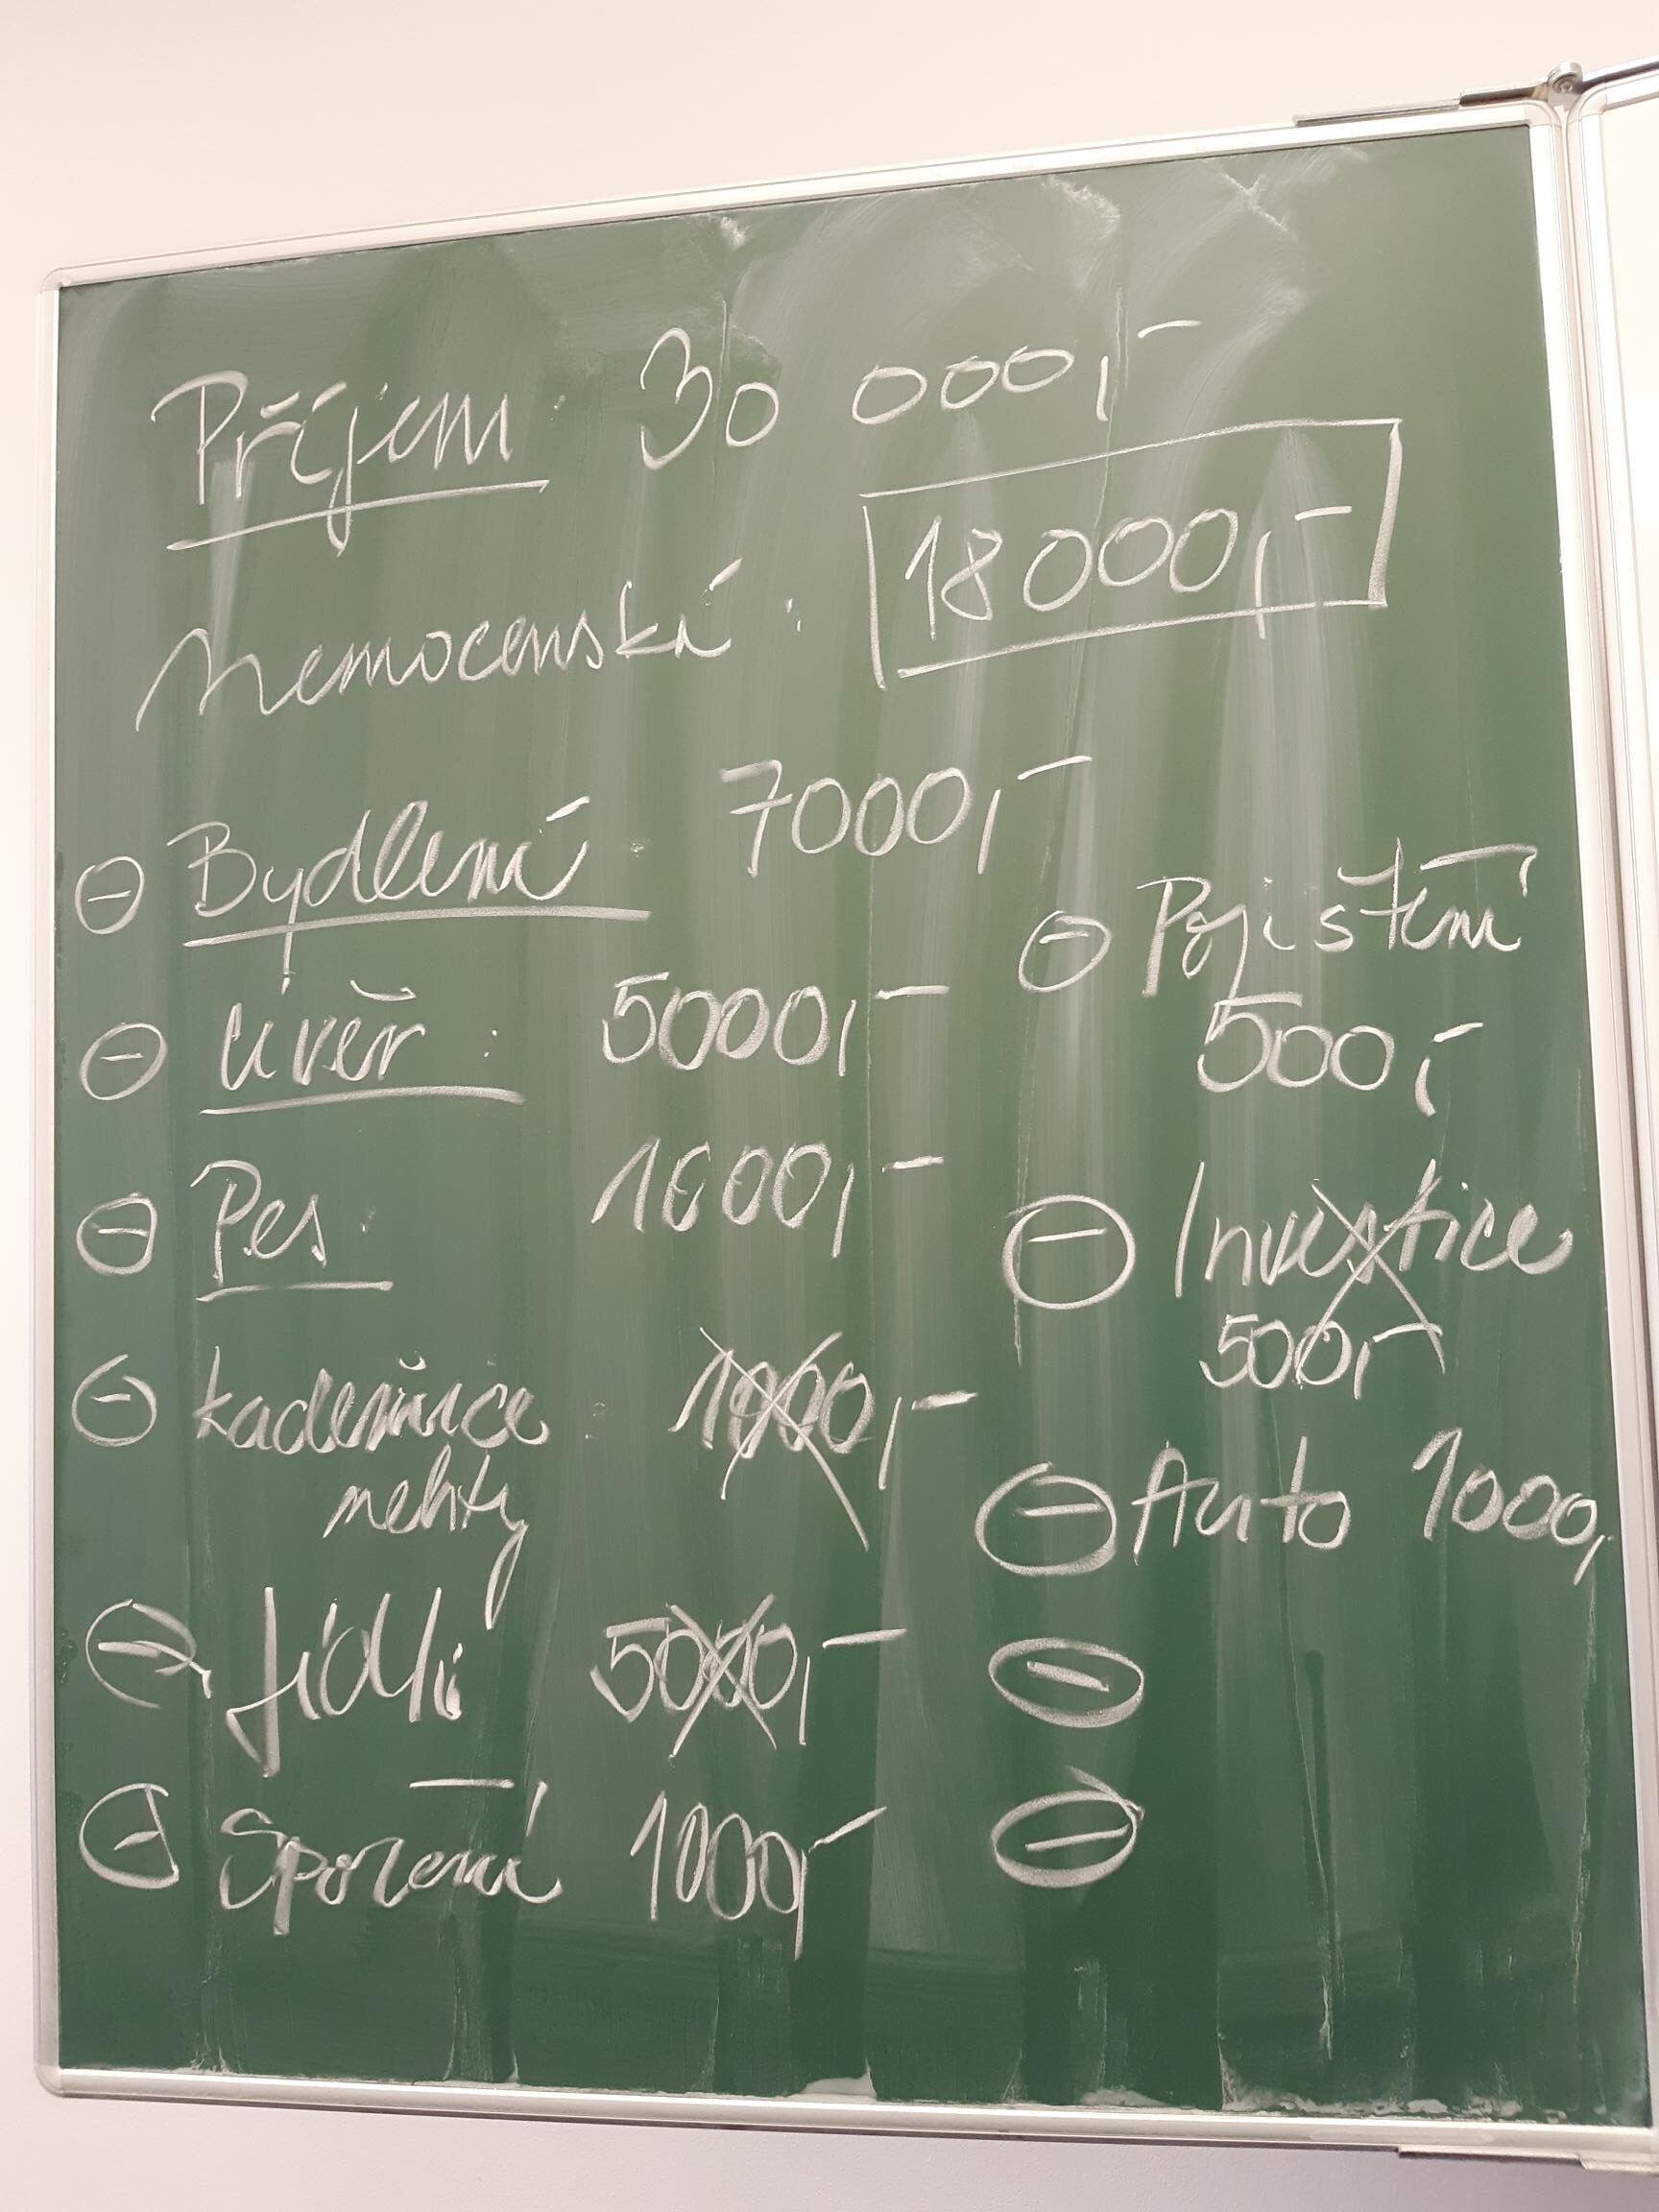 Příjem: 30 000,-
Nemocenská: 18 000,-
⊖ Bydlení 7000,-
⊖ Úvěr: 5000,-
⊖ Pes: 1000,-
⊖ kadeřnice 1000,-
nehty
⊖ Jídlo 5000,-
⊖ Spoření 1000,-
⊖ Pojištění
500,-
⊖ Investice
500,-
⊖ Auto 1000,-
⊖
⊖